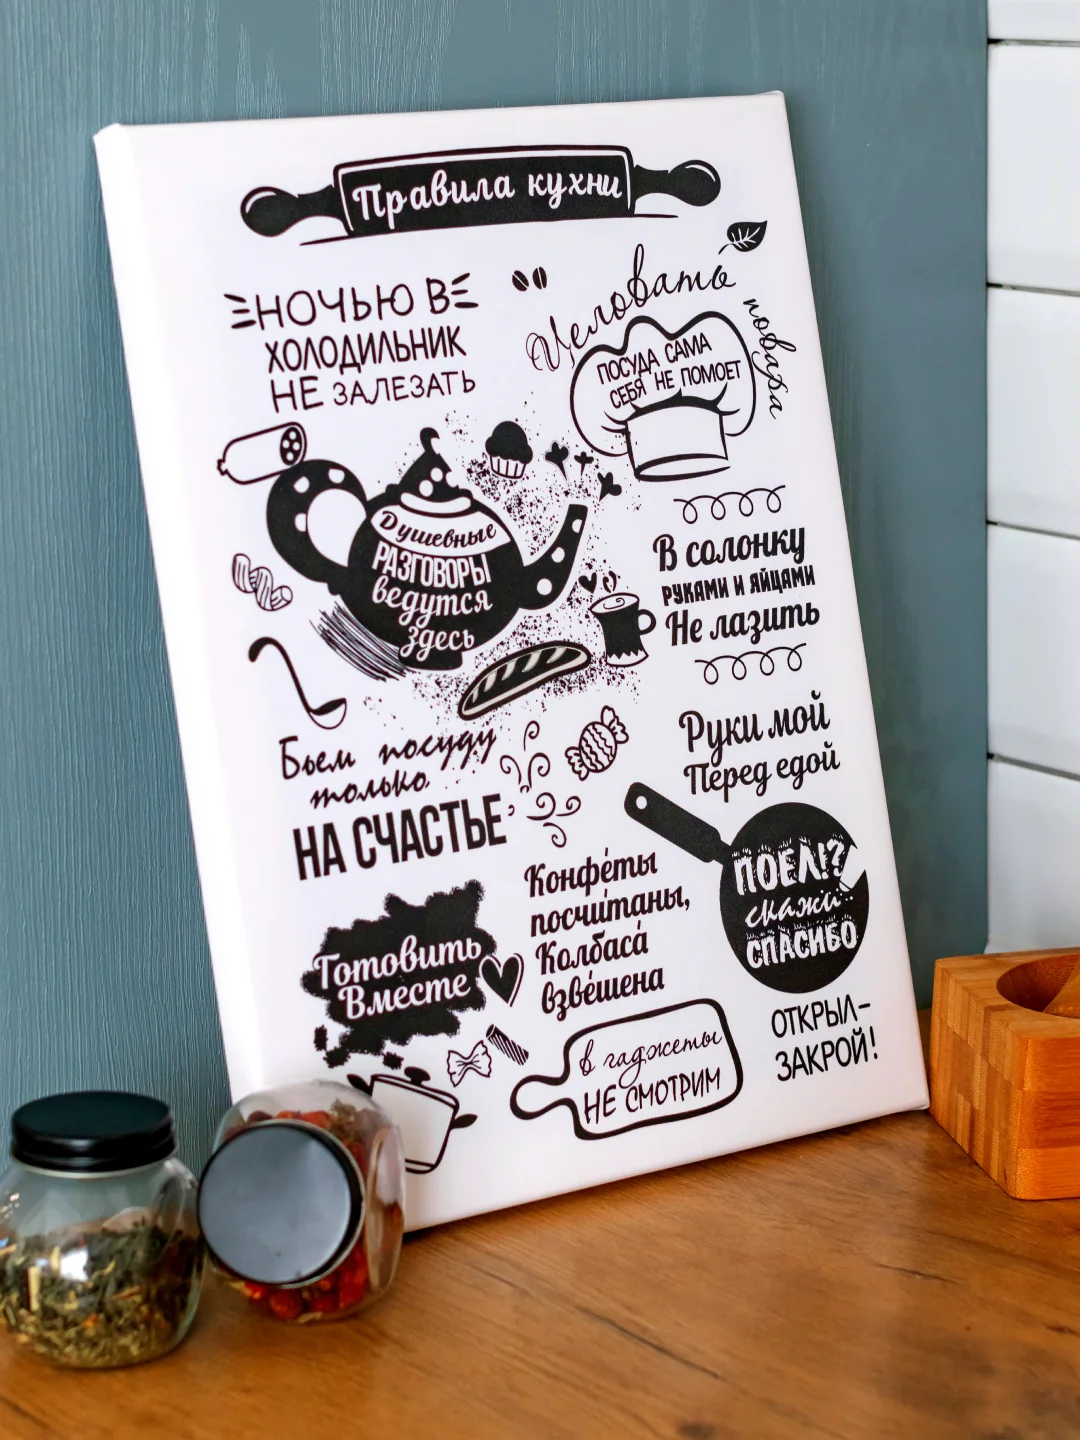 Правила кухни
НОЧЬЮ В
ХОЛОДИЛЬНИК
НЕ ЗАЛЕЗАТЬ
Целовать
повара
ПОСУДА САМА
СЕБЯ НЕ ПОМОЕТ
Душевные
РАЗГОВОРЫ
ведутся
здесь
В солонку
руками и яйцами
Не лазить
Бьем посуду
только
НА СЧАСТЬЕ
Руки мой
Перед едой
Конфе́ты
посчи́таны,
Колбаса́
взве́шена
ПОЕЛ!?
скажи...
СПАСИБО
Готовить
Вместе
ОТКРЫЛ-
ЗАКРОЙ!
в гаджеты
НЕ СМОТРИМ